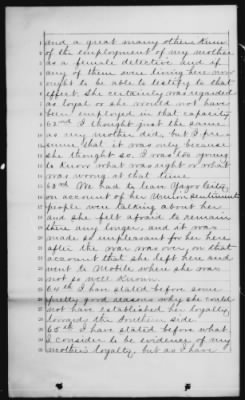 and a great many others knew
of the employment of my mother
as a female detective and if
any of them were living here now
ought to be able to testify to that
effect. She certainly was regarded
as loyal or she would not have
been employed in that capacity
62nd I thought just the same
as my mother did, but I pre-
sume that it was only because
she thought so. I was too young
to know what was right or what
was wrong at that time.
63rd We had to leave Yazoo City,
on account of her Union sentiments
people were talking about her
and she felt afraid to remain
there any longer, and it was
made so unpleasant for her here
after the war was over, on that
account that she left here and
went to Mobile where she was
not so well known.
64th I have stated before some
pretty good reasons why she could
not have established her loyalty
towards the Southern side
65th I have stated before what
I consider to be evidence of my
mother's loyalty, but as I have